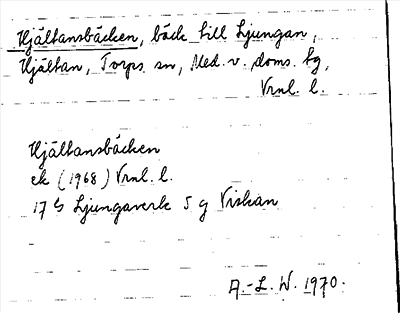 Hjältansbäcken, bäck till Ljungan,
Hjältan, Torps sn, Med. v. doms. tg,
Vrnl. l.
Hjältansbäcken
ek (1968) Vrnl. l.
17 G Ljungaverk 5 g Viskan
A.-L. W. 1970.